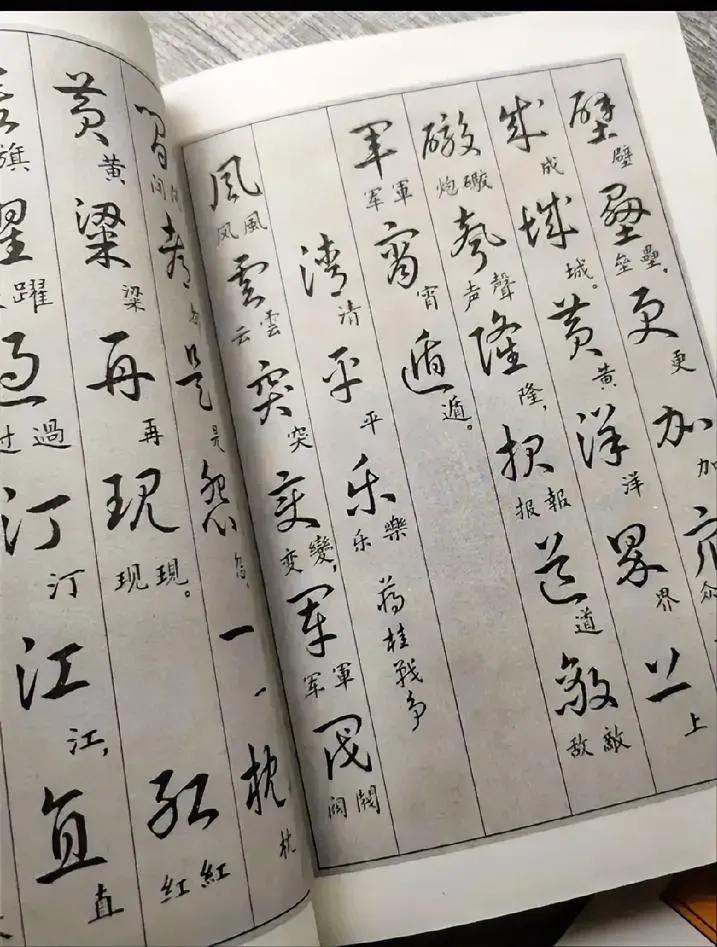 壁 壁 壘 垒壘, 更 更 加 加 众 众
成 成 城 城。 黄 黄 洋 洋 界 界 上 上
礮 炮礮 聲 声聲 隆 隆, 报 报報 道 道 敵 敌敵
军 军軍 宵 宵 遁 遁。
清 清 平 平 乐 乐樂 蒋桂戰争
風 风風 雲 云雲 突 突 变 变變, 军 军軍 阀 阀閥
间 间 都 是 是 怨 一 一 枕 枕
黄 黄 粱 粱 再 再 现 现現。 红 红紅
旗 躍 過 过過 汀 汀 江 江, 直 直